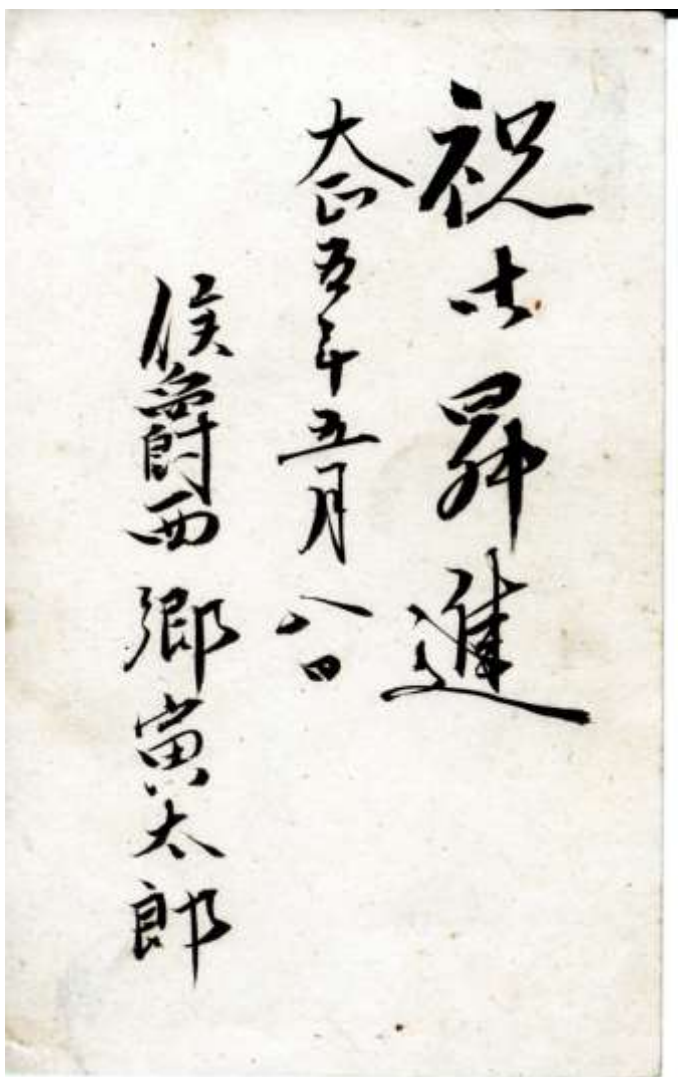 祝御昇進
大正五年五月八日
侯爵西郷寅太郎